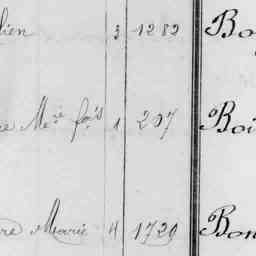 lien 3 1282 Bo
re Mce fois 1 207 Boi
re Marie 4 1720 Bon